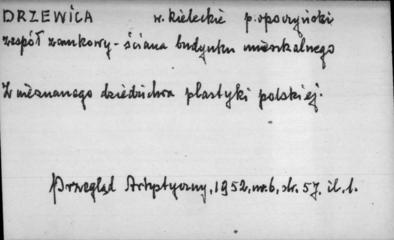 DRZEWICA w. kieleckie p. opoczyński
zespół zamkowy - ściana budynku mieszkalnego
Z nieznanego dziedzictwa plastyki polskiej.
Przegląd Artystyczny, 1952, nr. 6, str. 57. il. 1.